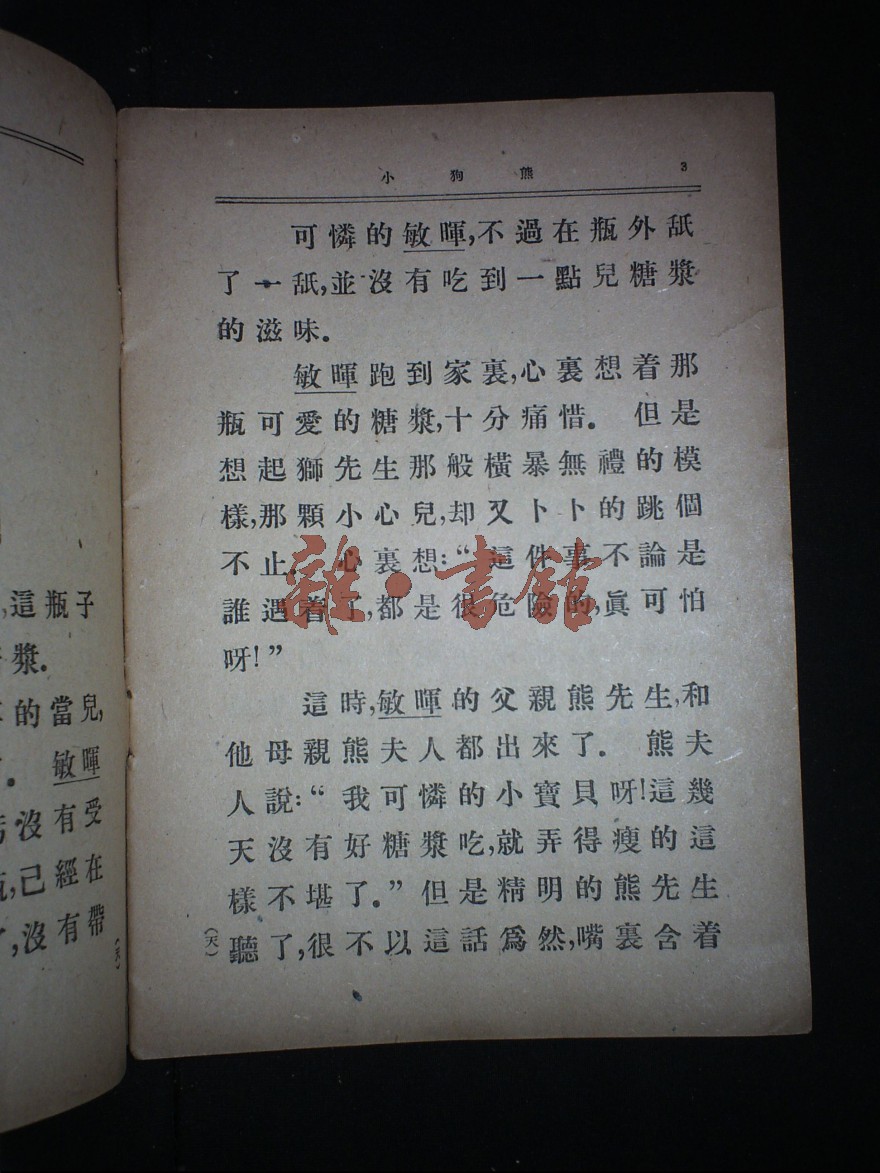 小狗熊 3
可憐的敏暉,不過在瓶外舐
了一舐,並沒有吃到一點兒糖漿
的滋味。
敏暉跑到家裏,心裏想着那
瓶可愛的糖漿,十分痛惜。 但是
想起獅先生那般橫暴無禮的模
樣,那顆小心兒,却又卜卜的跳個
不止。 心裏想:“這件事不論是
誰遇着了,都是很危險的,眞可怕
呀!”
這時,敏暉的父親熊先生,和
他母親熊夫人都出來了。 熊夫
人說:“我可憐的小寶貝呀!這幾
天沒有好糖漿吃,就弄得瘦的這
樣不堪了。” 但是精明的熊先生
聽了,很不以這話爲然,嘴裏含着
(天)
,這瓶子
漿。
的當兒,
。 敏暉
沒有受
,已經在
,沒有帶
雜·書館